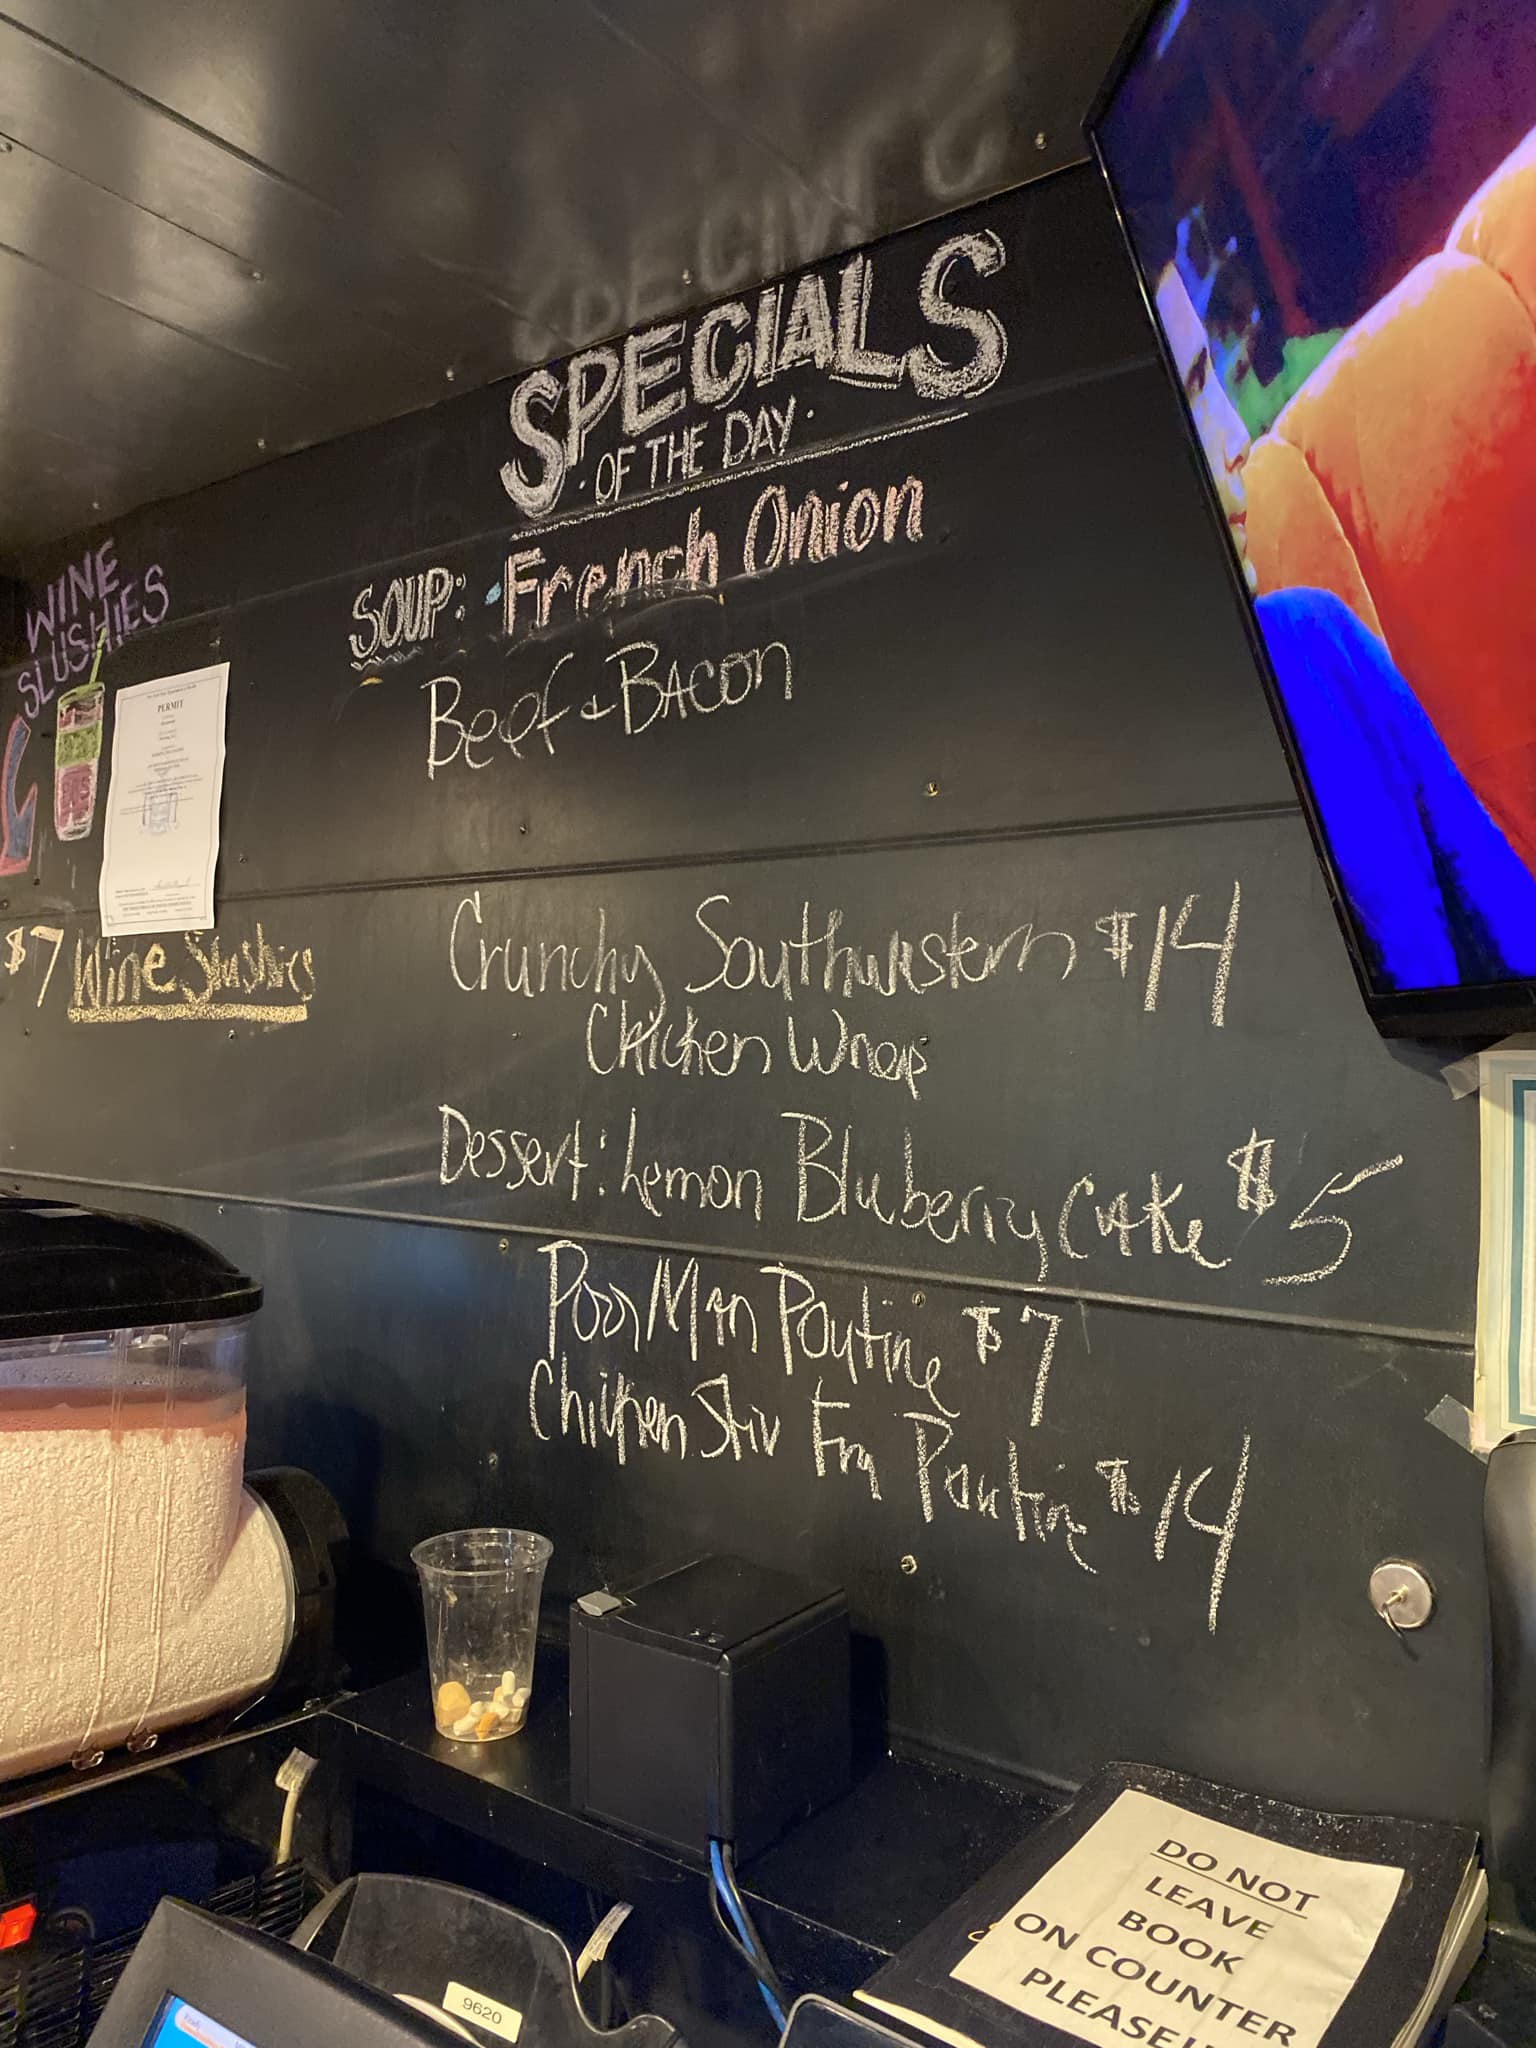 SPECIALS
· OF THE DAY ·
SOUP: · French Onion
Beef & Bacon
WINE
SLUSHIES
PERMIT
$7 Wine Slushies
Crunchy Southwestern $14
Chicken Wrap
Dessert: Lemon Blueberry Cake $5
Poor Man Poutine $7
Chicken Stir Fry Poutine $14
DO NOT
LEAVE
BOOK
ON COUNTER
PLEASE!!
9620